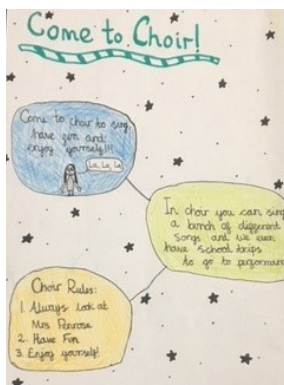 Come to Choir!
Come to choir to sing,
have fun and
enjoy yourself!!!
La La La
In choir you can sing
a bunch of different
songs and we even
have school trips
to go to performan
Choir Rules:
1. Always look at
Mrs Penrose
2. Have Fun
3. Enjoy yourself!